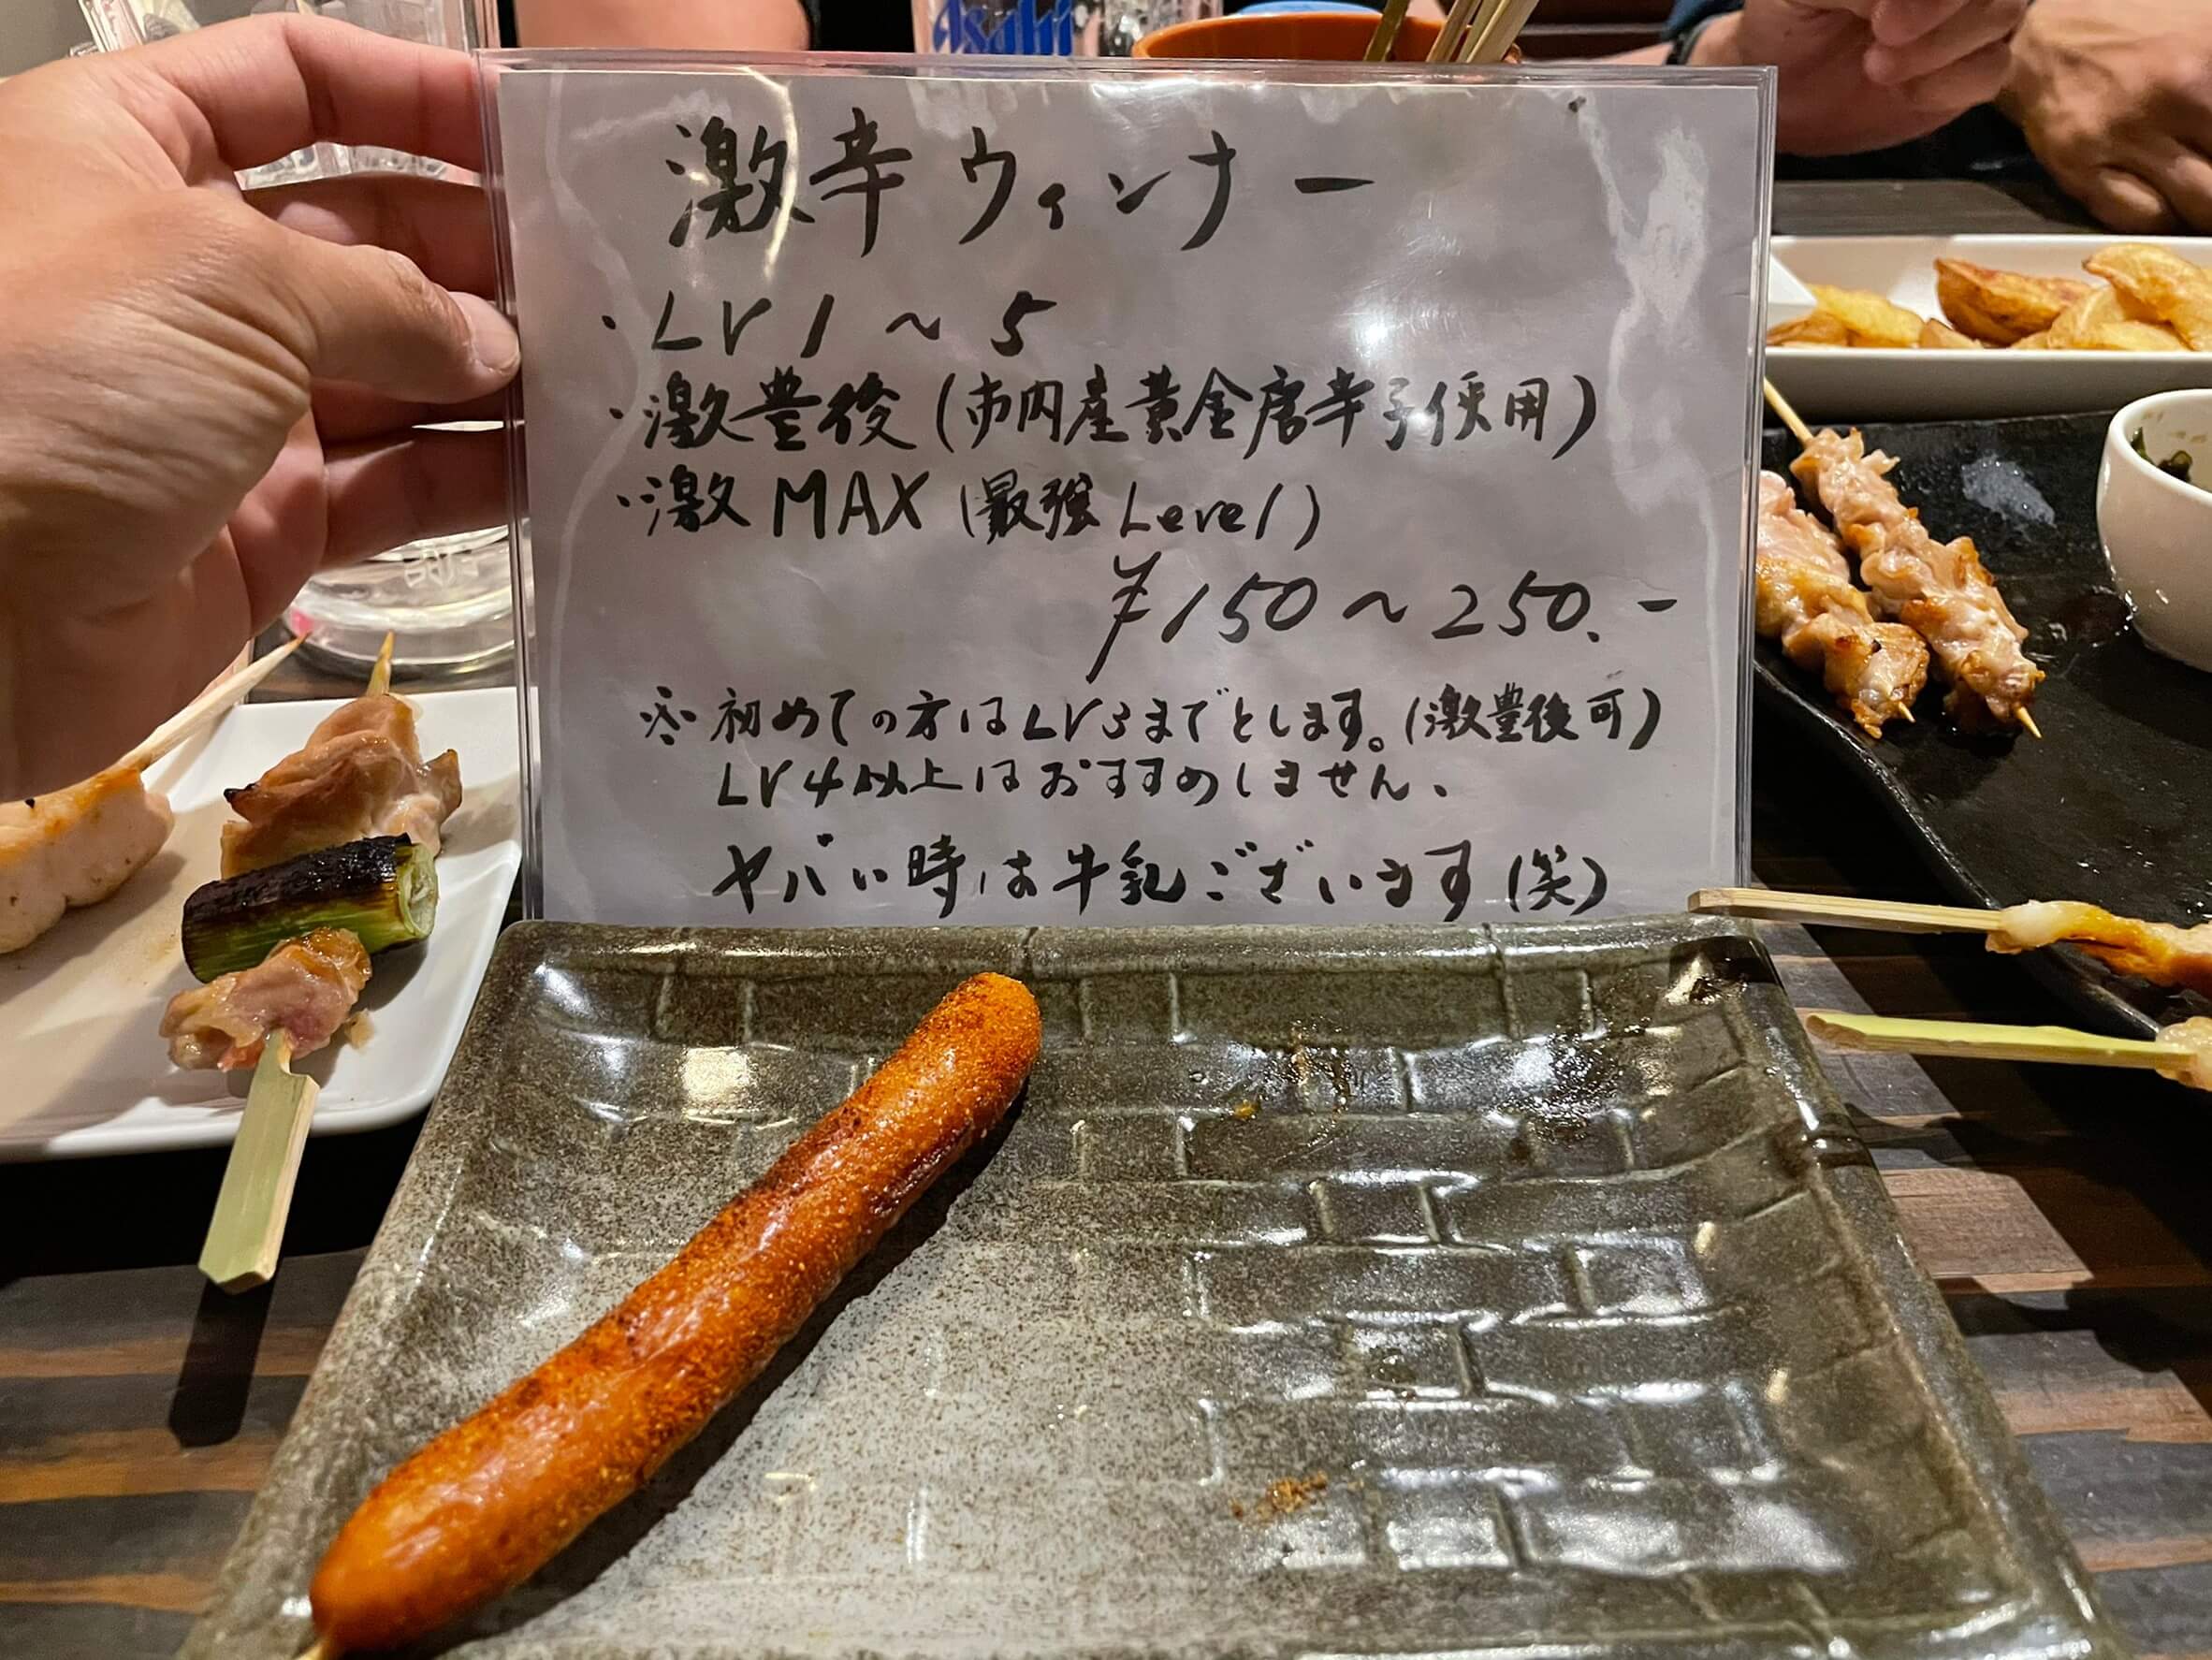 Asahi
激辛ウィンナー
・LV 1 ~ 5
・激豊後(市内産黄金唐辛子使用)
・激MAX(最強Level)
¥150~250.-
※初めての方はLV3までとします。(激豊後可)
LV4以上はおすすめしません、
ヤバい時は牛乳ございます(笑)